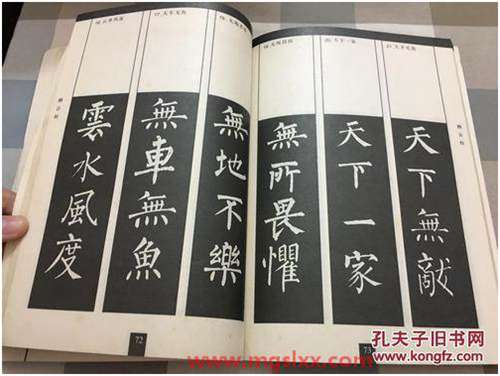 雲水風度
無車無魚
無地不樂
無所畏懼
天下一家
天下無敵
72
73
www.mgslxx.com
孔夫子旧书网
www.kongfz.com